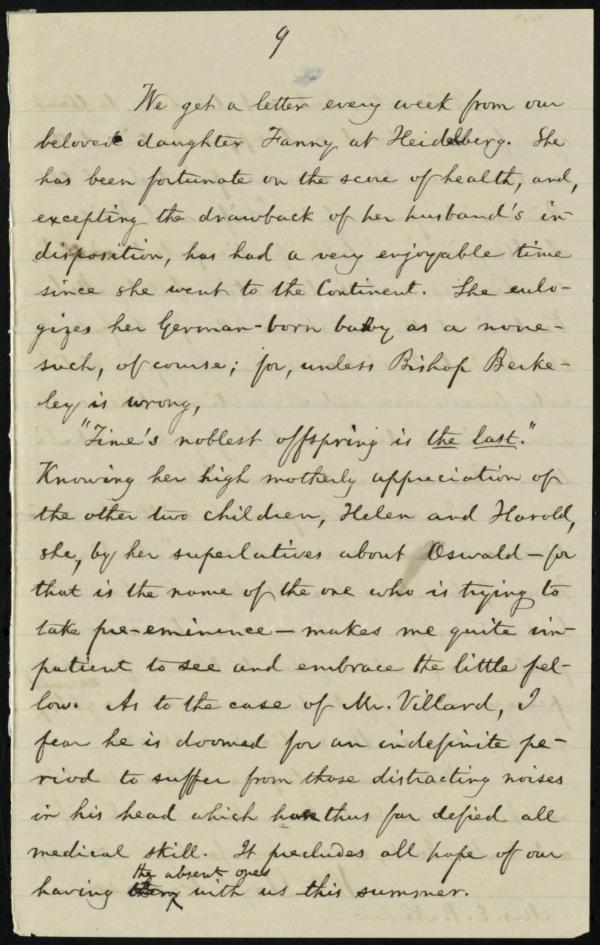 9
We get a letter every week from our
beloved daughter Fanny at Heidelberg. She
has been fortunate on the score of health, and,
excepting the drawback of her husband's in-
disposition, has had a very enjoyable time
since she went to the Continent. She eulo-
gizes her German-born baby as a none-
such, of course; for, unless Bishop Berke-
ley is wrong,
"Time's noblest offspring is the last."
Knowing her high motherly appreciation of
the other two children, Helen and Harold,
she, by her superlatives about Oswald—for
that is the name of the one who is trying to
take pre-eminence—makes me quite im-
patient to see and embrace the little fel-
low. As to the case of Mr. Villard, I
fear he is doomed for an indefinite pe-
riod to suffer from those distracting noises
in his head which have thus far defied all
medical skill. It precludes all hope of our
the absent ones
having them with us this summer.